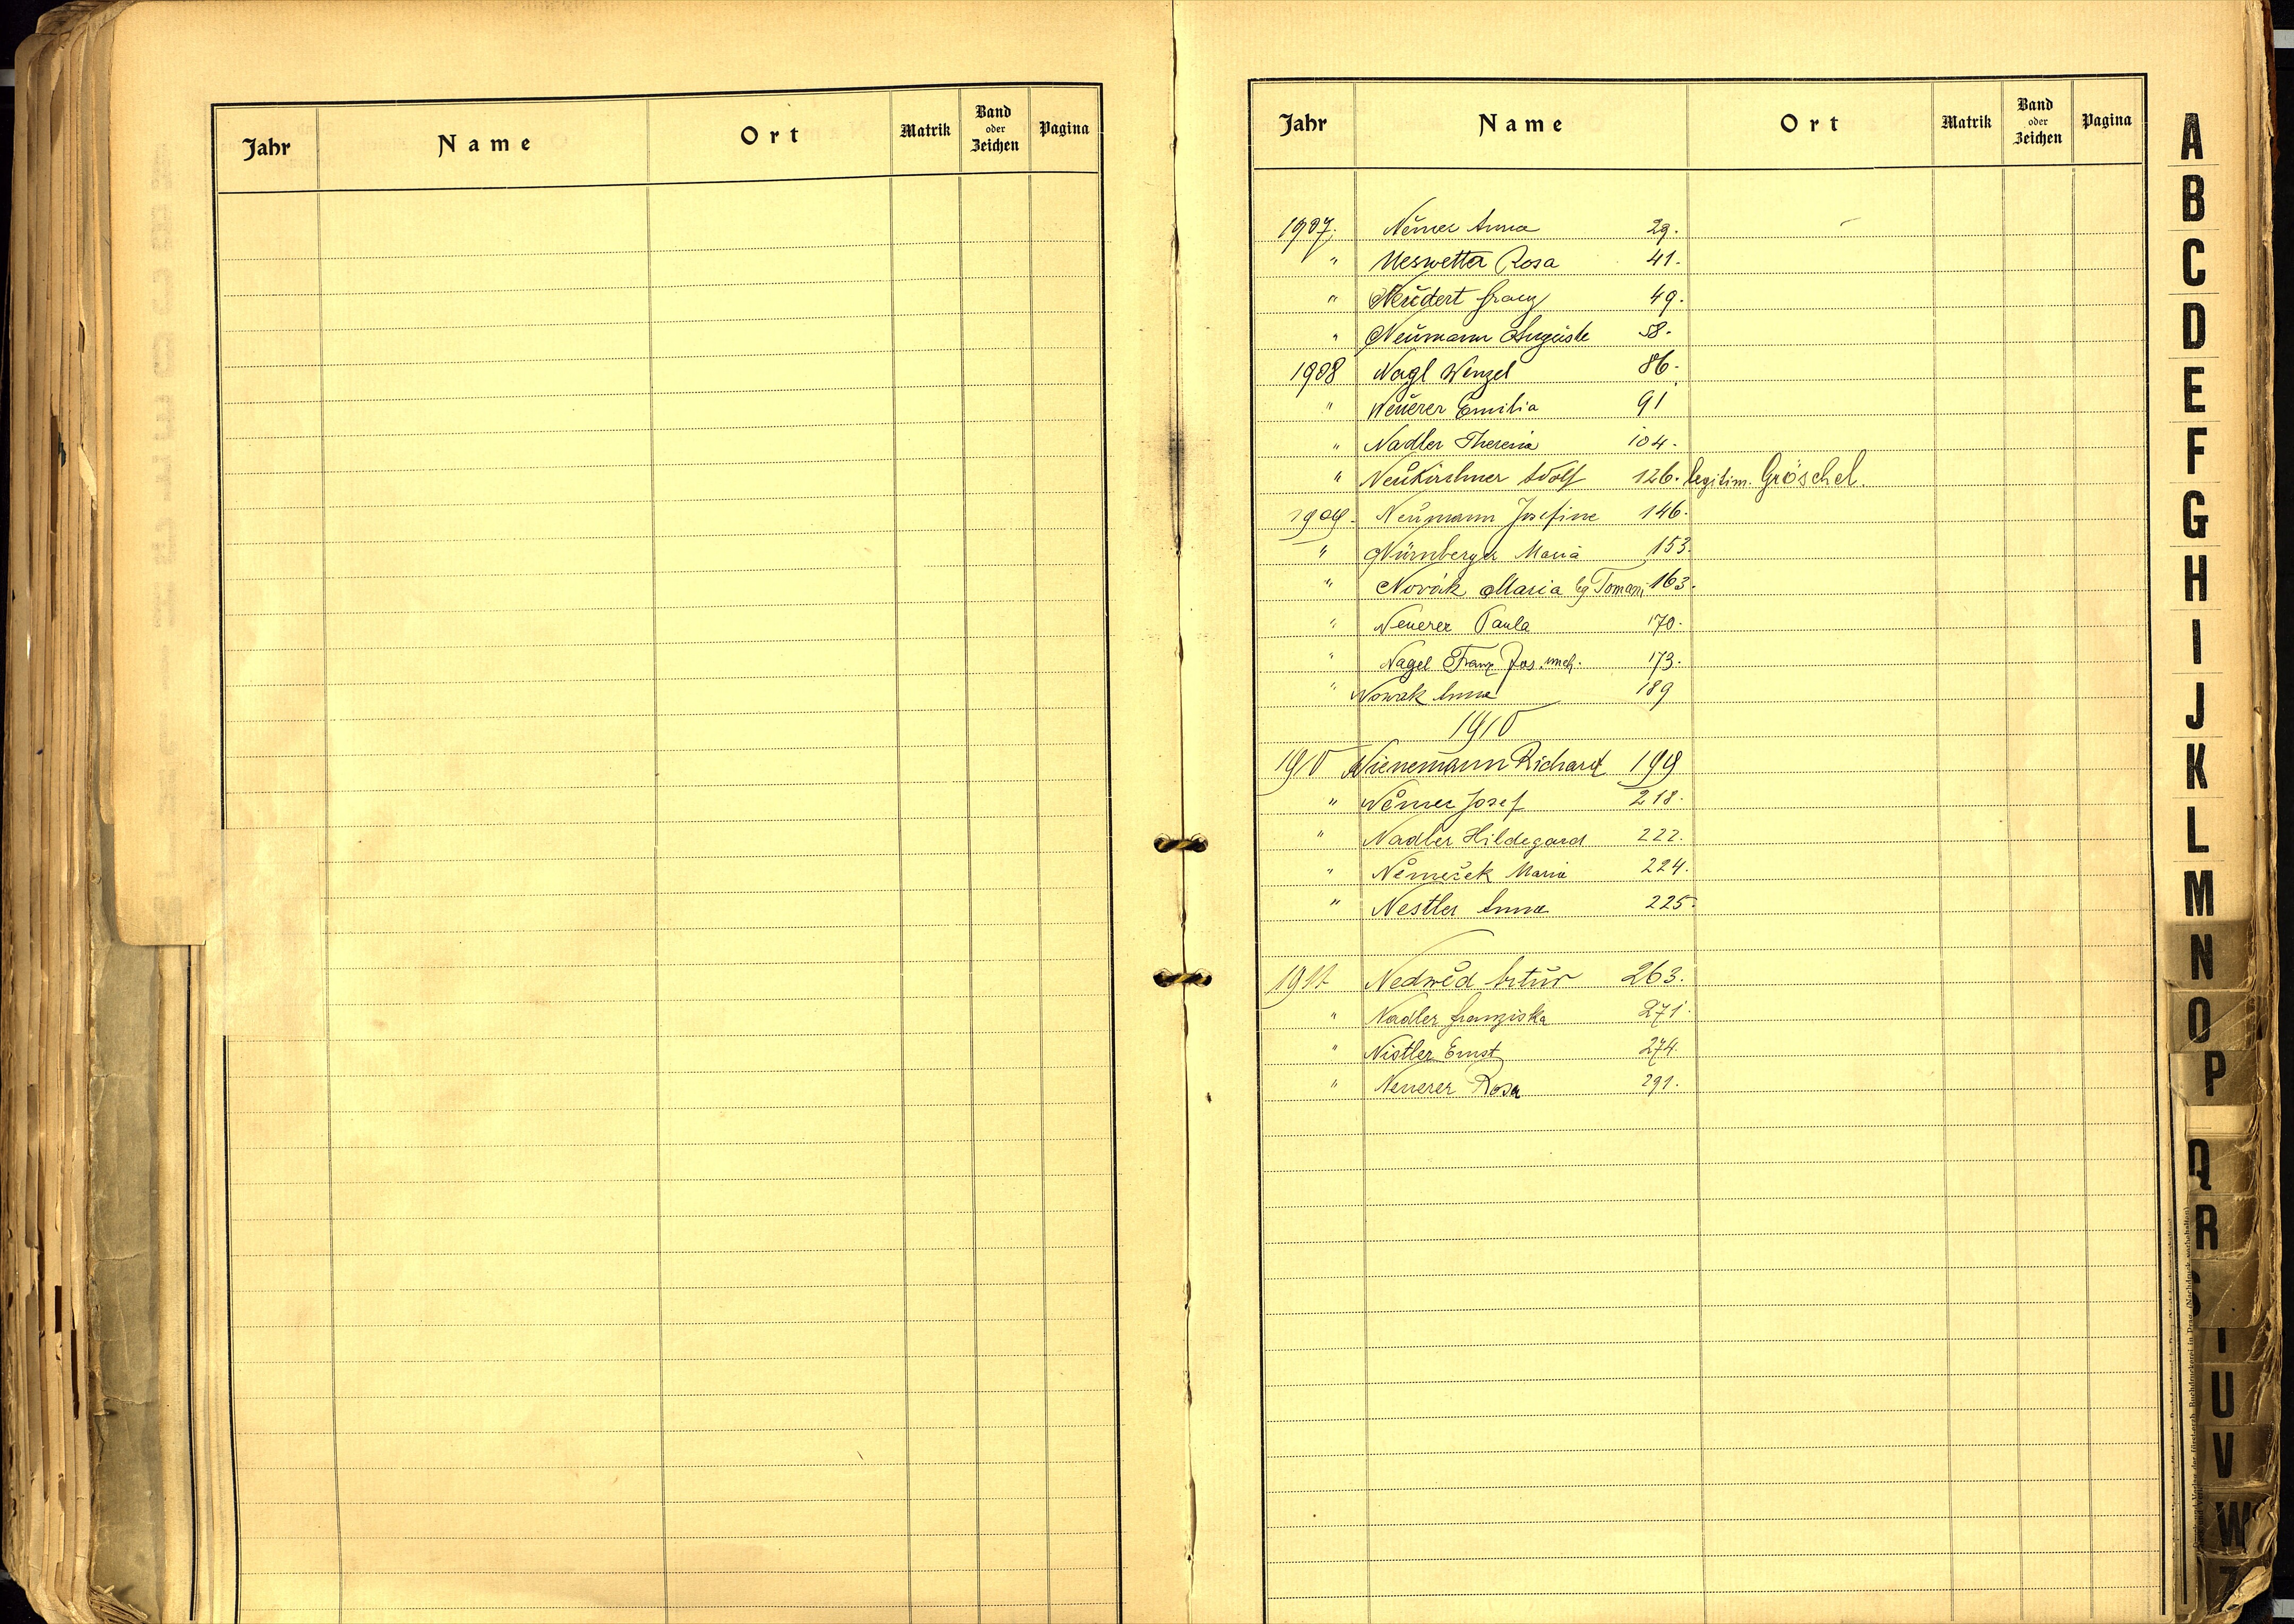 Jahr Name Ort Matrik Band oder Zeichen Pagina
Jahr Name Ort Matrik Band oder Zeichen Pagina
1907. Němec Anna 29.
" Neswetter Rosa 41.
" Neudert Franz 49.
" Neumann Auguste 58.
1908 Nagl Wenzel 86.
" Neuerer Emilia 91
" Nadler Theresia 104.
" Neukirchner Adolf 126. legitim. Gröschel.
1909. Neumann Josefine 146.
" Nürnberger Maria 153.
" Novák Maria lg Toman 163.
" Neuerer Paula 170.
" Nagel Franz Jos. 173.
" Nowak Anna 189
1910
1910 Nienemann Richard 199
" Němec Josef 218.
" Nadler Hildegard 222.
" Němeček Maria 224.
" Nestler Anna 225.
1911 Nedwěd Artur 263.
" Nadler Franziska 271.
" Nistler Ernst 274.
" Neuerer Rosa 291.
A
B
C
D
E
F
G
H
I
J
K
L
M
N
O
P
Q
R
U
V
W